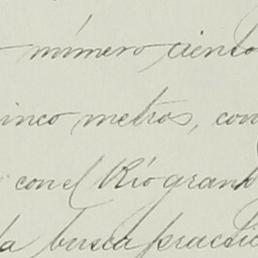 mímero ciento
inco metros, con
con el Río grand
la busca practic